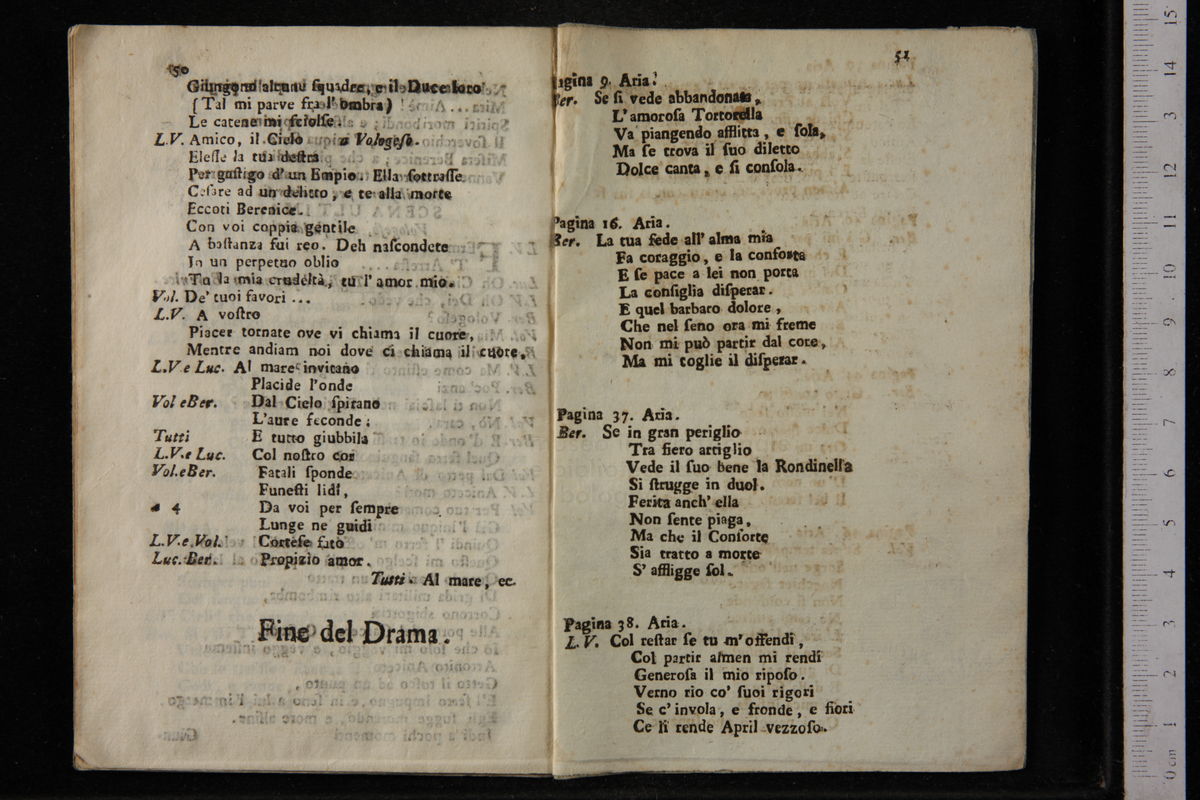 50
Giungono alcune ſquadre, e il Duce loro
(Tal mi parve fra l'ombra)
Le catene mi ſciolſe.
L.V. Amico, il Cielo a Vologeſo.
Eleſſe la tua deſtra
Per gaſtigo d'un Empio. Ella ſottraſſe
Ceſare ad un delitto, e te alla morte
Eccoti Berenice.
Con voi coppia gentile
A baſtanza fui reo. Deh naſcondete
In un perpetuo oblio
Tu la mia crudeltà, tu l'amor mio.
Vol. De' tuoi favori ...
L.V. A voſtro
Piacer tornate ove vi chiama il cuore,
Mentre andiam noi dove ci chiama il cuore.
L.V e Luc. Al mare invitano
Placide l'onde
Vol e Ber. Dal Cielo ſpirano
L'aure feconde;
Tutti E tutto giubbila
L.V.e Luc. Col noſtro cor
Vol.e Ber. Fatali ſponde
Funeſti lidi,
a 4 Da voi per ſempre
Lunge ne guidi
L.V.e Vol. Corteſe fato
Luc. Ber. Propizio amor.
Tutti. Al mare, ec.
Fine del Drama.
51
Pagina 9. Aria.
Ber. Se ſi vede abbandonata,
L'amoroſa Tortorella
Va piangendo afflitta, e ſola,
Ma ſe trova il ſuo diletto
Dolce canta, e ſi conſola.
Pagina 16. Aria.
Ber. La tua fede all'alma mia
Fa coraggio, e la conforta
E ſe pace a lei non porta
La conſiglia diſperar.
E quel barbaro dolore,
Che nel ſeno ora mi freme
Non mi può partir dal core,
Ma mi toglie il diſperar.
Pagina 37. Aria.
Ber. Se in gran periglio
Tra fiero artiglio
Vede il ſuo bene la Rondinella
Si ſtrugge in duol.
Ferita anch'ella
Non ſente piaga,
Ma che il Conſorte
Sia tratto a morte
S'affligge ſol.
Pagina 38. Aria.
L.V. Col reſtar ſe tu m'offendi,
Col partir almen mi rendi
Generoſa il mio ripoſo.
Verno rio co' ſuoi rigori
Se c'invola, e fronde, e fiori
Ce li rende April vezzoſo.